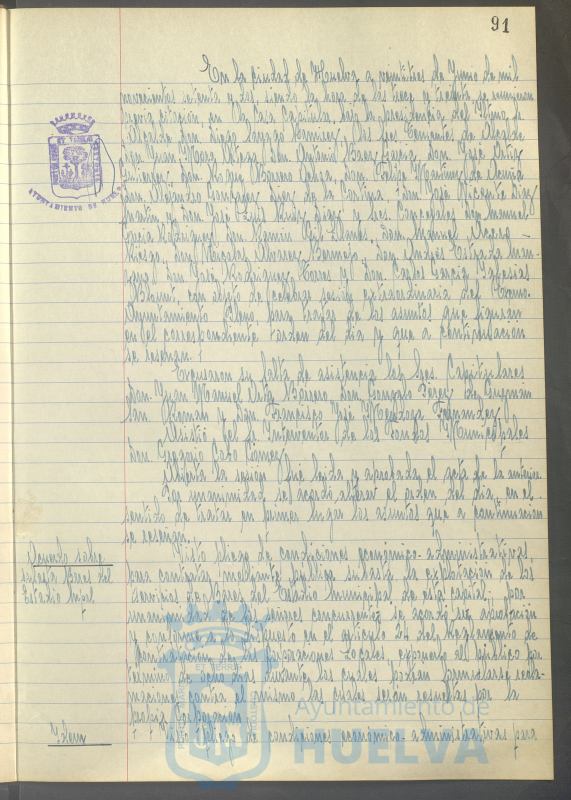 91
En la ciudad de Huelva a veintitres de Junio de mil
novecientos setenta y dos siendo la hora de las trece y treinta se reunieron
previa citación, en la Casa Capitular, bajo la presidencia del Iltmo. Sr.
Alcalde don Diego Sayago Ramirez, los Sres. Tenientes de Alcalde
don Juan Mora Ortega, don Antonio Baez, don José Ortiz
don Roque Barrero Ortega, don Felipe Martinez de Acuña
don Alejandro Gonzalez Diez de la Cortina, don José Vicente Diaz
Martin y don José Luis Diaz y Sres. Concejales don Manuel
Garcia Rodriguez, don Ramón Gil Llanes, don Manuel
Riesgo, don Nicolas Alvarez Bermejo, don Andrés Estrada
don José Rodriguez Torres y don Carlos Garcia Iglesias
con objeto de celebrar sesión extraordinaria del Excmo.
Ayuntamiento Pleno, para tratar de los asuntos que figuran
en el correspondiente orden del dia y que a continuación
se reseñan.
Excusaron su falta de asistencia los Sres. Capitulares
don Juan Manuel Borrero, don Gonzalo Perez de Guzman
San Roman y don Francisco José Mendoza Fernandez
Asistió el Sr. Interventor de los Fondos Municipales
don Gregorio Cabo Gomez.
Abierta la sesión fué leida y aprobada el acta de la anterior.
Por unanimidad se acordó alterar el orden del dia, en el
sentido de tratar en primer lugar los asuntos que a continuación
se reseñan.
Acuerdo sobre
subasta Bares del
Estadio Mpal.
Visto pliego de condiciones económico-administrativas
para contratar mediante pública subasta la explotación de los
servicios de Bares del Estadio Municipal de esta capital, por
unanimidad de los señores concurrentes se acordó su aprobación
y conforme a lo dispuesto en el articulo 24 del Reglamento de
Contratación de las Corporaciones Locales, exponerlo al público por
término de ocho dias durante los cuales podrán formularse recla-
maciones contra el mismo las cuales serán resueltas por la
propia Corporación.
Idem
Visto pliego de condiciones económico-administrativas para
AYUNTAMIENTO DE HUELVA
Ayuntamiento de
HUELVA